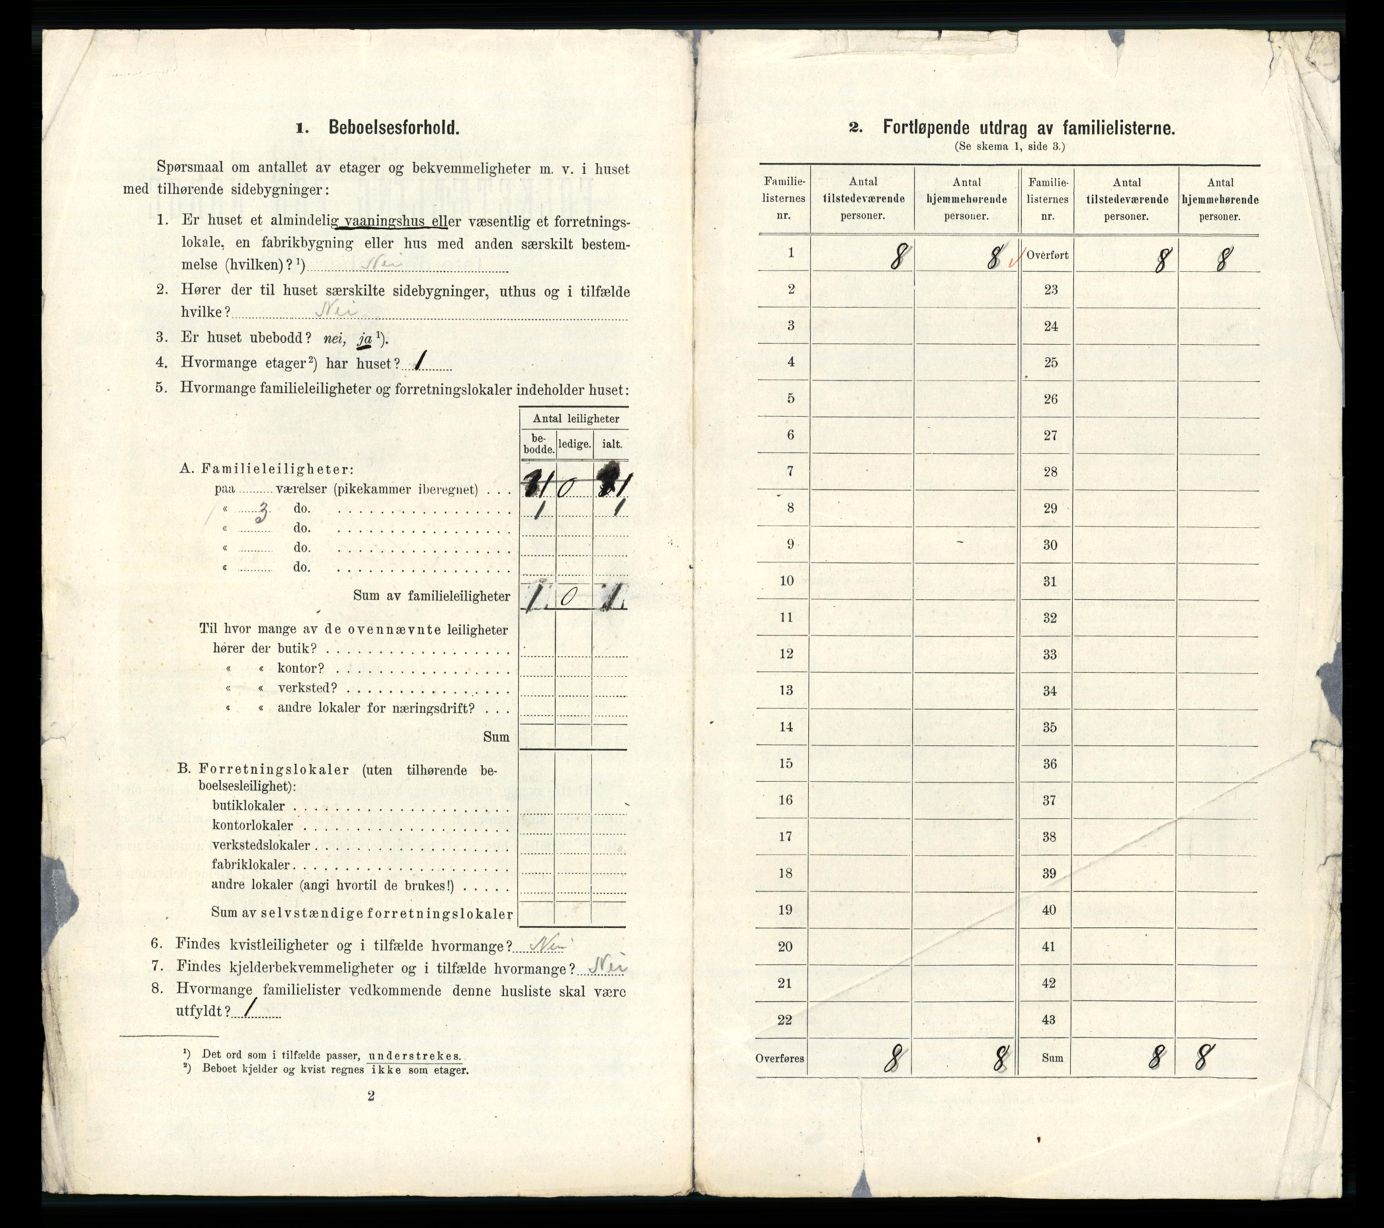 1. Beboelsesforhold.
Spørsmaal om antallet av etager og bekvemmeligheter m. v. i huset
med tilhørende sidebygninger:
1. Er huset et almindelig vaaningshus eller væsentlig et forretnings-
lokale, en fabrikbygning eller hus med anden særskilt bestem-
melse (hvilken)?¹) Nei
2. Hører der til huset særskilte sidebygninger, uthus og i tilfælde
hvilke? Nei
3. Er huset ubebodd? nei, ja¹).
4. Hvormange etager²) har huset? 1
5. Hvormange familieleiligheter og forretningslokaler indeholder huset:
Antal leiligheter
be-bodde. ledige. ialt.
A. Familieleiligheter:
paa værelser (pikekammer iberegnet) . . . 1 0 1
« 3 do. 1 1
« do.
« do.
« do.
Sum av familieleiligheter 1 0 1
Til hvor mange av de ovennævnte leiligheter
hører der butik?
« « kontor?
« « verksted?
« « andre lokaler for næringsdrift?
Sum
B. Forretningslokaler (uten tilhørende be-
boelsesleilighet):
butiklokaler
kontorlokaler
verkstedslokaler
fabriklokaler
andre lokaler (angi hvortil de brukes!)
Sum av selvstændige forretningslokaler
6. Findes kvistleiligheter og i tilfælde hvormange? Nei
7. Findes kjelderbekvemmeligheter og i tilfælde hvormange? Nei
8. Hvormange familielister vedkommende denne husliste skal være
utfyldt? 1
¹) Det ord som i tilfælde passer, understrekes.
²) Beboet kjelder og kvist regnes ikke som etager.
2
2. Fortløpende utdrag av familielisterne.
(Se skema 1, side 3.)
Familie-listernes nr. Antal tilstedeværende personer. Antal hjemmehørende personer. Familie-listernes nr. Antal tilstedeværende personer. Antal hjemmehørende personer.
1 8 8 Overført 8 8
2 23
3 24
4 25
5 26
6 27
7 28
8 29
9 30
10 31
11 32
12 33
13 34
14 35
15 36
16 37
17 38
18 39
19 40
20 41
21 42
22 43
Overføres 8 8 Sum 8 8